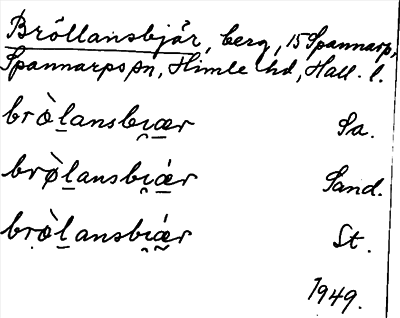 Bröllansbjär, berg, 15 Spannarp,
Spannarps sn, Himle hd, Hall. l.
brò̱lansbi̯ær Sa.
brø̀lansbi̯ǽr Sand.
brò̱lansbi̯ǽr St.
1949.